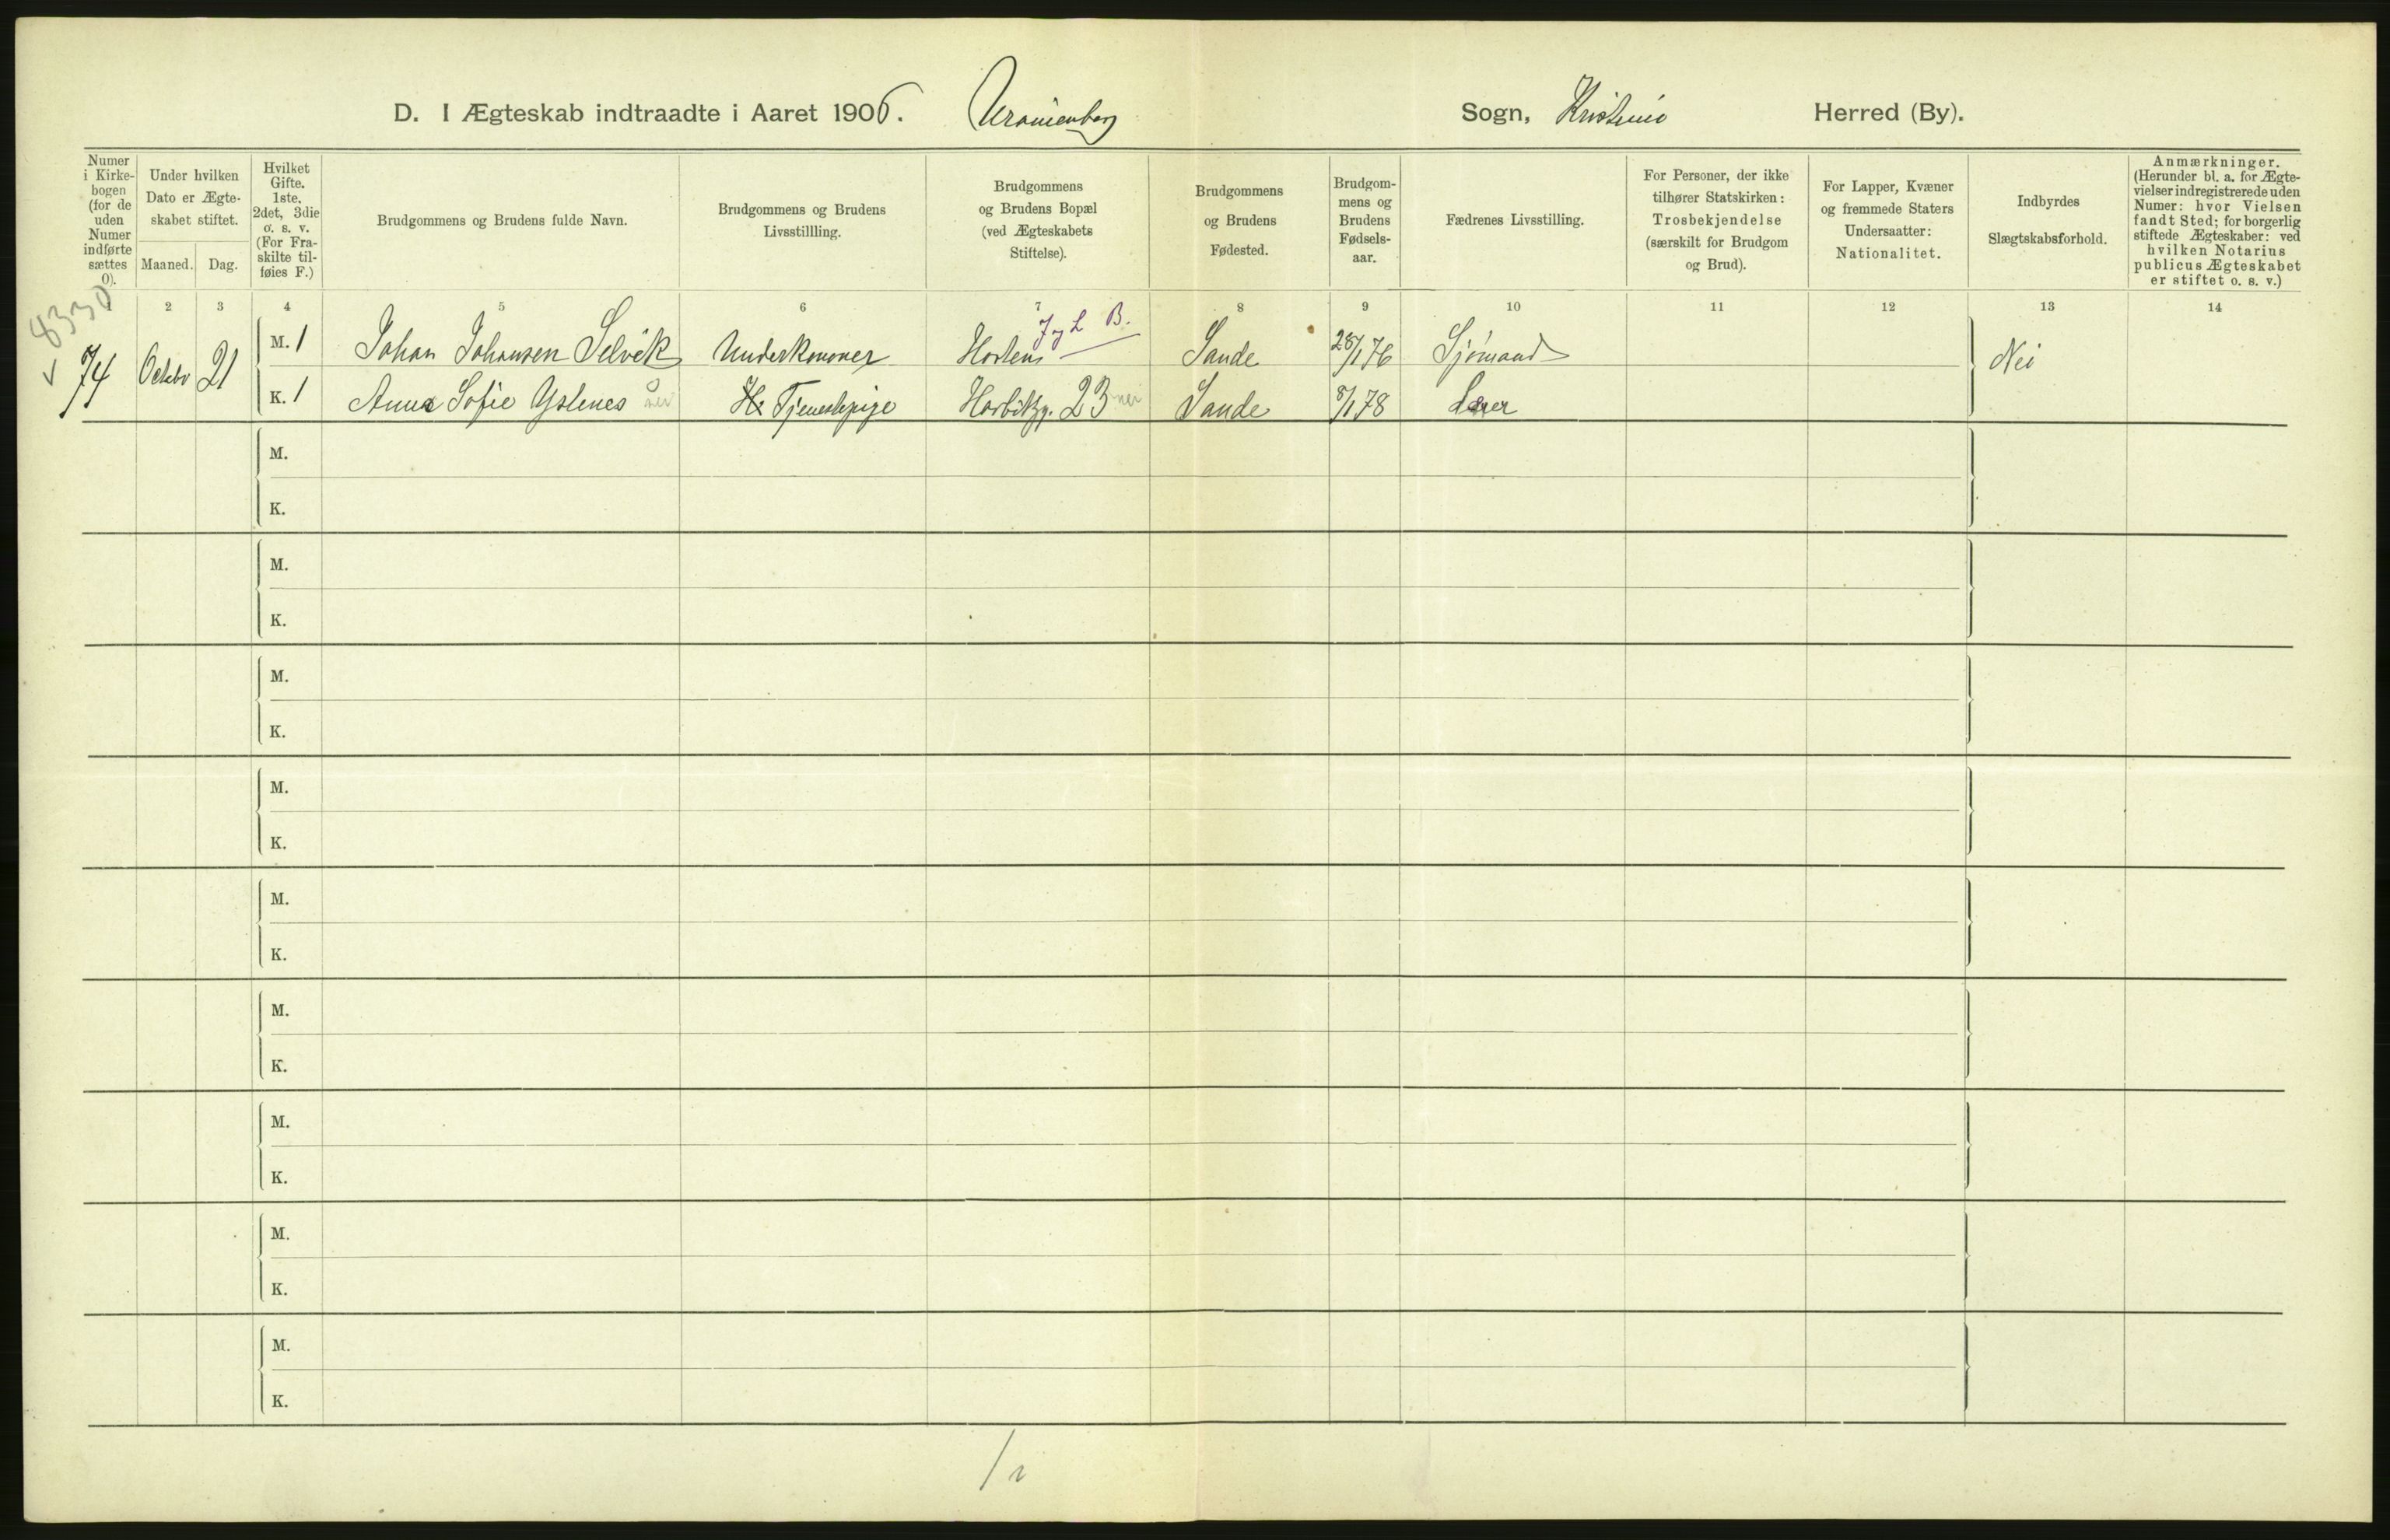 D. I Ægteskab indtraadte i Aaret 1906. Uranienborg Sogn, Kristiania Herred (By).
Numer i Kirkebogen (for de uden Numer indførte sættes 0).
Under hvilken Dato er Ægteskabet stiftet.
Maaned. Dag.
Hvilket Gifte. 1ste. 2det, 3die o. s. v. (For Fraskilte tilføies F.)
Brudgommens og Brudens fulde Navn.
Brudgommens og Brudens Livsstillling.
Brudgommens og Brudens Bopæl (ved Ægteskabets Stiftelse).
Brudgommens og Brudens Fødested.
Brudgommens og Brudens Fødselsaar.
Fædrenes Livsstilling.
For Personer, der ikke tilhører Statskirken: Trosbekjendelse (særskilt for Brudgom og Brud).
For Lapper, Kvæner og fremmede Staters Undersaatter: Nationalitet.
Indbyrdes Slægtskabsforhold.
Anmærkninger. (Herunder bl. a. for Ægtevielser indregistrerede uden Numer: hvor Vielsen fandt Sted; for borgerlig stiftede Ægteskaber: ved hvilken Notarius publicus Ægteskabet er stiftet o. s. v.)
1 2 3 4 5 6 7 8 9 10 11 12 13 14
8330
74 Octobr 21
M. 1 Johan Johansen Selvik Underkanoner Horten Sande 28/1 76 Sjømand Nei
K. 1 Anna Sofie Yslenes Tjenestepige Harbitzg. 23 Sande 8/1 78 Lærer
M.
K.
M.
K.
M.
K.
M.
K.
M.
K.
M.
K.
M.
K.
M.
K.
M.
K.